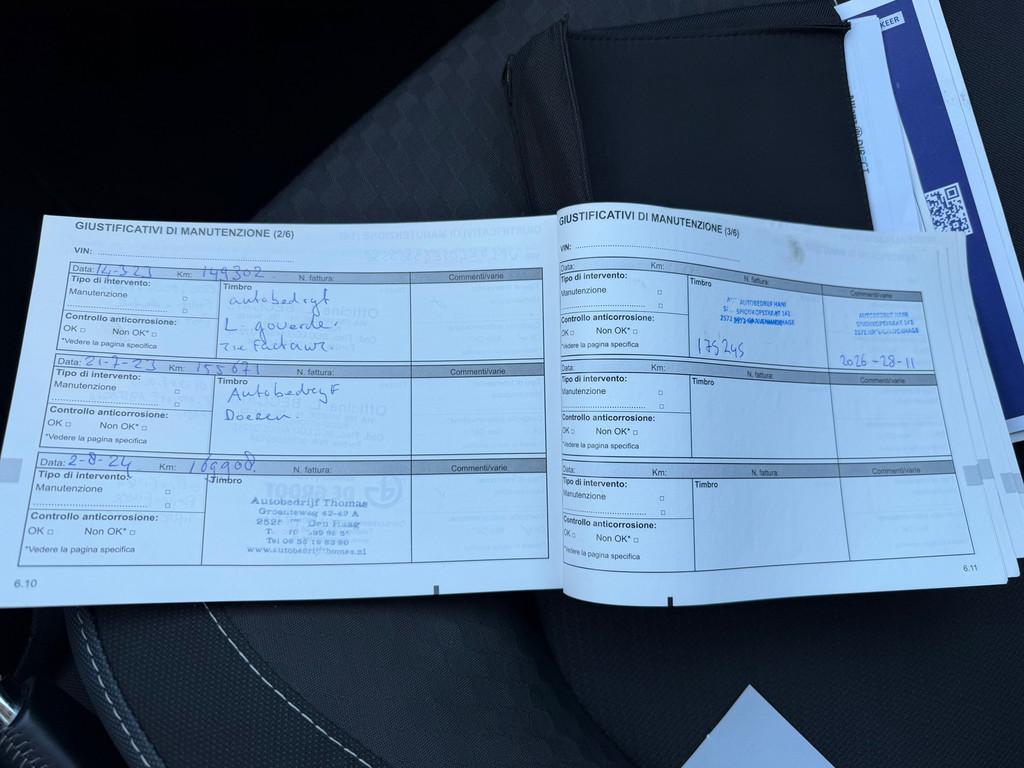 KEER
GIUSTIFICATIVI DI MANUTENZIONE (2/6)
VIN:
Data: 14-3-23 Km: 149302 N. fattura: Commenti/varie
Tipo di intervento:
Manutenzione
Controllo anticorrosione:
OK □ Non OK* □
*Vedere la pagina specifica
Timbro
autobedryf
L. goverde.
zie factuur.
Data: 21-7-23 Km: 155671 N. fattura: Commenti/varie
Tipo di intervento:
Manutenzione
Controllo anticorrosione:
OK □ Non OK* □
*Vedere la pagina specifica
Timbro
Autobedryf
Doeren.
Data: 2-8-24 Km: 169908. N. fattura: Commenti/varie
Tipo di intervento:
Manutenzione
Controllo anticorrosione:
OK □ Non OK* □
*Vedere la pagina specifica
Timbro
Autobedrijf Thomas
Groenteweg 42-49 A
Den Haag
www.autobedrijfthomes.nl
6.10
GIUSTIFICATIVI DI MANUTENZIONE (3/6)
VIN:
Data: Km: N. fattura: Commenti/varie
Tipo di intervento:
Manutenzione
Controllo anticorrosione:
OK □ Non OK* □
*Vedere la pagina specifica
Timbro
AUTOBEDRIJF HANI
175245
2026-28-11
Data: Km: N. fattura: Commenti/varie
Tipo di intervento:
Manutenzione
Controllo anticorrosione:
OK □ Non OK* □
*Vedere la pagina specifica
Timbro
Data: Km: N. fattura: Commenti/varie
Tipo di intervento:
Manutenzione
Controllo anticorrosione:
OK □ Non OK* □
*Vedere la pagina specifica
Timbro
6.11